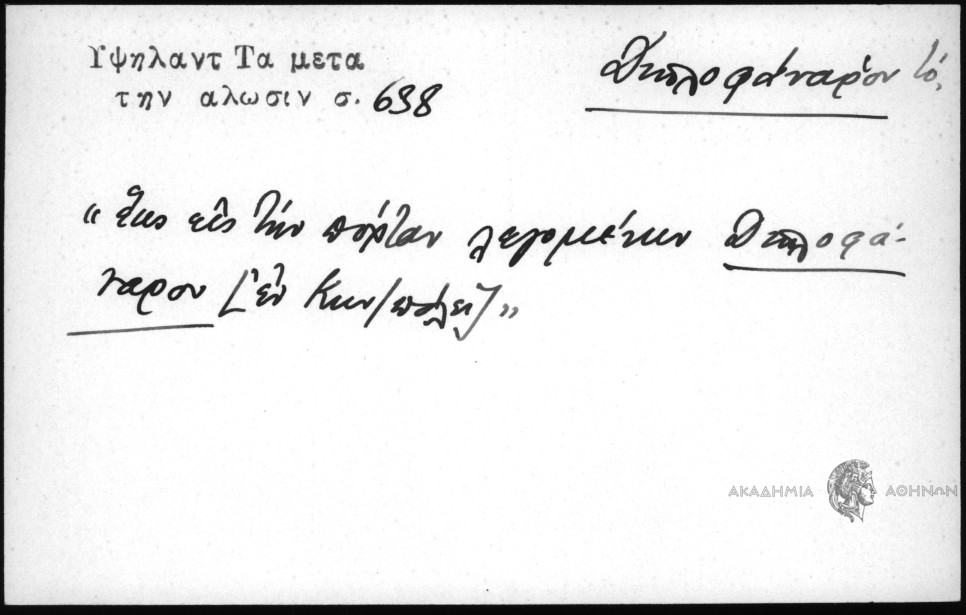 Υψηλαντ Τα μετα
την αλωσιν σ. 638
Διπλοφάναρον τό,
«ἕως εἰς τήν πόρταν λεγομένην Διπλοφά-
ναρον [ἐν Κων/πόλει]»
ΑΚΑΔΗΜΙΑ ΑΘΗΝΩΝ